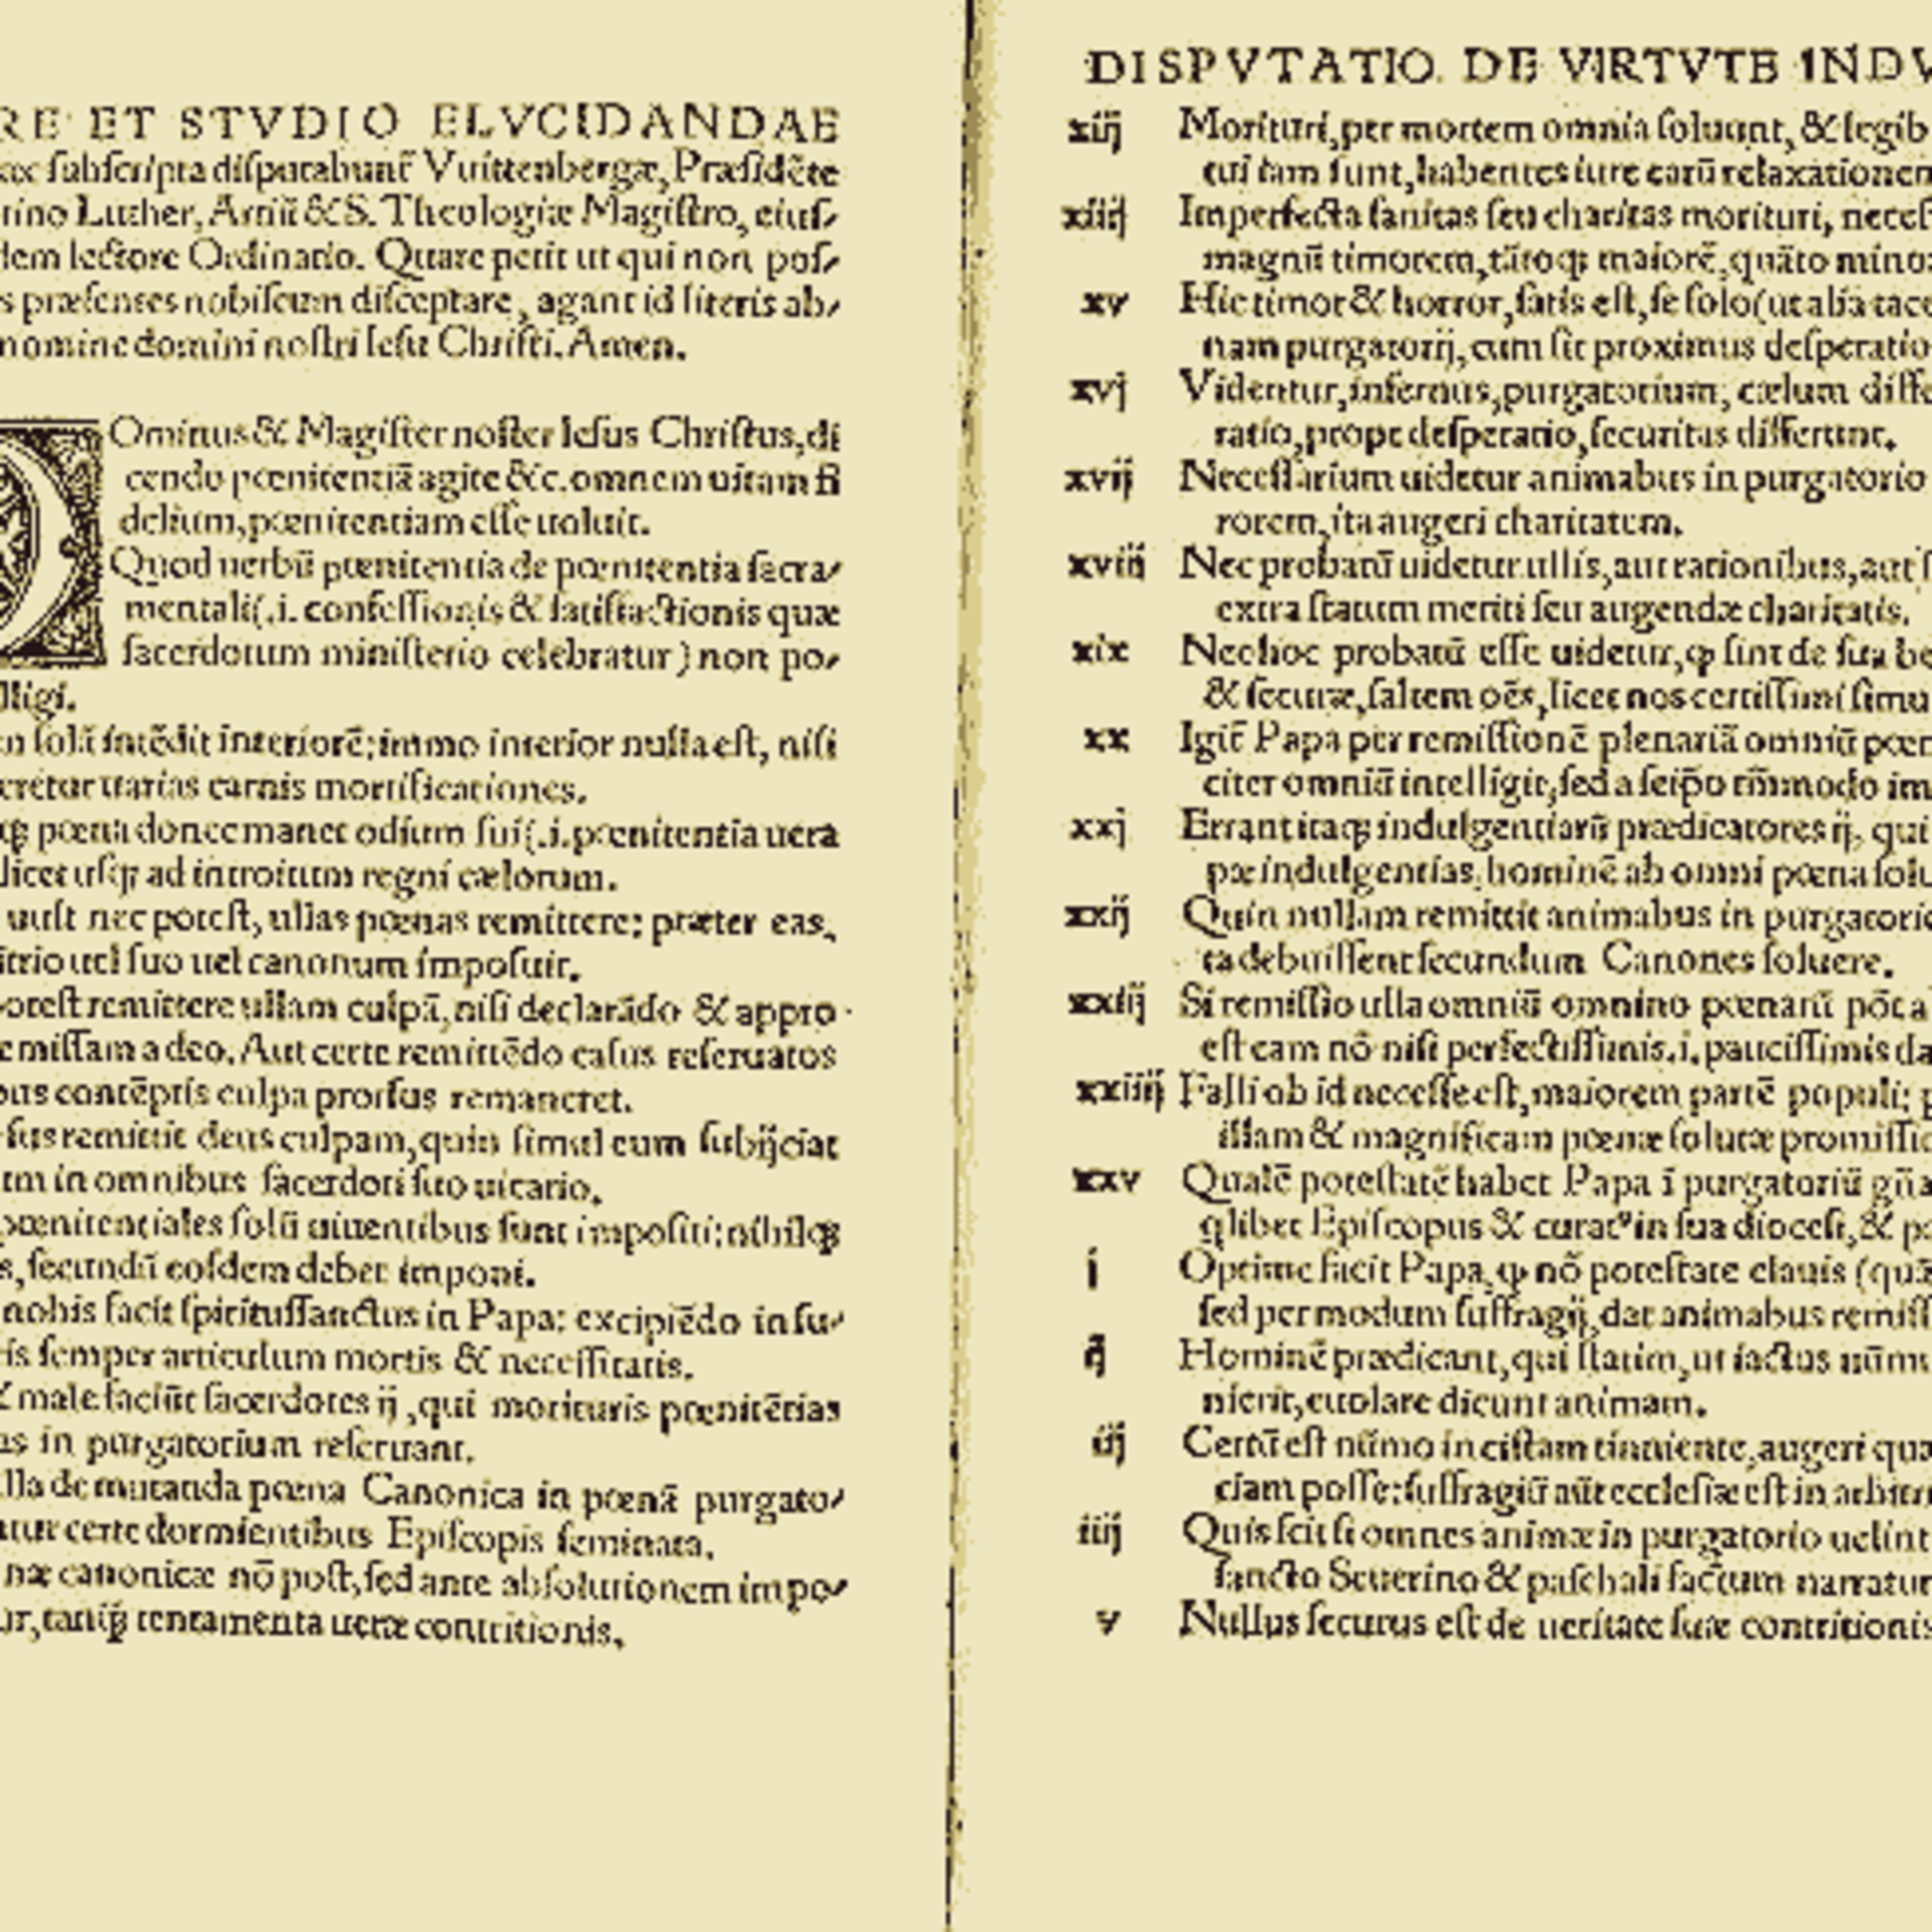 RE ET STVDIO ELVCIDANDAE
subscripta disputabunt̃ Vuittenbergæ, Præsidẽte
Luther, Artiũ & S. Theologiæ Magistro, eius-
lectore Ordinario. Quare petit ut qui non pos-
præsentes nobiscum disceptare, agant id literis ab-
nomine domini nostri Iesu Christi. Amen.
DOminus & Magister noster Iesus Christus, di
cendo pœnitentiã agite &c. omnem uitam fi
delium, pœnitentiam esse uoluit.
Quod uerbũ pœnitentia de pœnitentia sacra-
mentali (.i. confessionis & satisfactionis quæ
sacerdotum ministerio celebratur) non po-
lligi.
solã intẽdit interiorẽ; immo interior nulla est, nisi
uarias carnis mortificationes.
pœna donec manet odium sui (.i. pœnitentia uera
licet usqꝫ ad introitum regni cælorum.
uult nec potest, ullas pœnas remittere: præter eas,
itrio uel suo uel canonum imposuit.
otest remittere ullam culpã, nisi declarãdo & appro-
emissam a deo. Aut certe remittẽdo casus reseruatos
bus contẽptis culpa prorsus remaneret.
sus remittit deus culpam, quin simul eum subijciat
um in omnibus sacerdoti suo uicario.
pœnitentiales solũ uiuentibus sunt impositi; nihilqꝫ
s, secundũ eosdem debet imponi.
nobis facit spiritussanctus in Papa: excipiẽdo in su-
is semper articulum mortis & necessitatis.
& male faciũt sacerdotes ij, qui morituris pœnitẽtias
as in purgatorium reseruant.
lla de mutanda pœna Canonica in pœnã purgato-
ntur certe dormientibus Episcopis seminata.
næ canonicæ nõ post, sed ante absolutionem impo-
ur, tanqꝫ tentamenta ueræ contritionis.
DISPVTATIO. DE VIRTVTE INDV
xiij Morituri, per mortem omnia soluunt, & legib
tui iam sunt, habentes iure earũ relaxationem
xiiij Imperfecta sanitas seu charitas morituri, necess
magnũ timorem, tãtoqꝫ maiorẽ, quãto mino
xv Hic timor & horror, satis est, se solo (ut alia tace
nam purgatorij, cum sit proximus desperatio
xvj Videntur, infernus, purgatorium, cælum diffe
ratio, prope desperatio, securitas differunt.
xvij Necessarium uidetur animabus in purgatorio
rorem, ita augeri charitatem.
xviij Nec probatũ uidetur ullis, aut rationibus, aut s
extra statum meriti seu augendæ charitatis.
xix Nec hoc probatũ esse uidetur, ꝙ sint de sua be
& securæ, saltem oẽs, licet nos certissimi simu
xx Igit̃ Papa per remissionẽ plenariã omniũ pœn
citer omniũ intelligit, sed a seip̃o tm̃modo im
xxj Errant itaqꝫ indulgentiarũ prædicatores ij, qui
pæ indulgentias, hominẽ ab omni pœna solu
xxij Quin nullam remittit animabus in purgatorio
ta debuissent secundum Canones soluere.
xxiij Si remissio ulla omniũ omnino pœnarũ põt a
est eam nõ nisi perfectissimis .i. paucissimis da
xxiiij Falli ob id necesse est, maiorem partẽ populi: p
illam & magnificam pœnæ solutæ promissio
xxv Qualẽ potestatẽ habet Papa ĩ purgatoriũ gña
qlibet Episcopus & curatꝰ in sua diocesi, & p
j Optime facit Papa, ꝙ nõ potestate clauis (quã
sed per modum suffragij, dat animabus remiss
ij Hominẽ prædicant, qui statim, ut iactus nũmu
nierit, euolare dicunt animam.
iij Certũ est nũmo in cistam tinniente, augeri quæ
ciam posse: suffragiũ aũt ecclesiæ est in arbitr
iiij Quis scit si omnes animæ in purgatorio uelint
sancto Seuerino & paschali factum narratur
v Nullus securus est de ueritate suæ contritionis